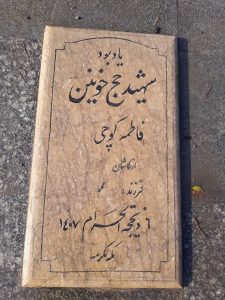 یادبود
شهید حج خونین
فاطمه کوچی
از کاشان
فرزند: محمود
٦ ذیحجه الحرام ١٤٠٧
مکه مکرمه